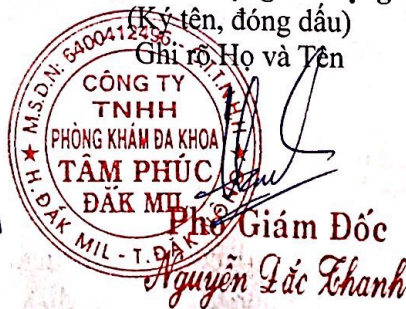 (Ký tên, đóng dấu)
Ghi rõ Họ và Tên
M.S.D.N: 6400412496
CÔNG TY
TNHH
PHÒNG KHÁM ĐA KHOA
TÂM PHÚC
ĐĂK MIL
H. ĐĂK MIL - T. ĐĂK
Phó Giám Đốc
Nguyễn Đắc Khanh